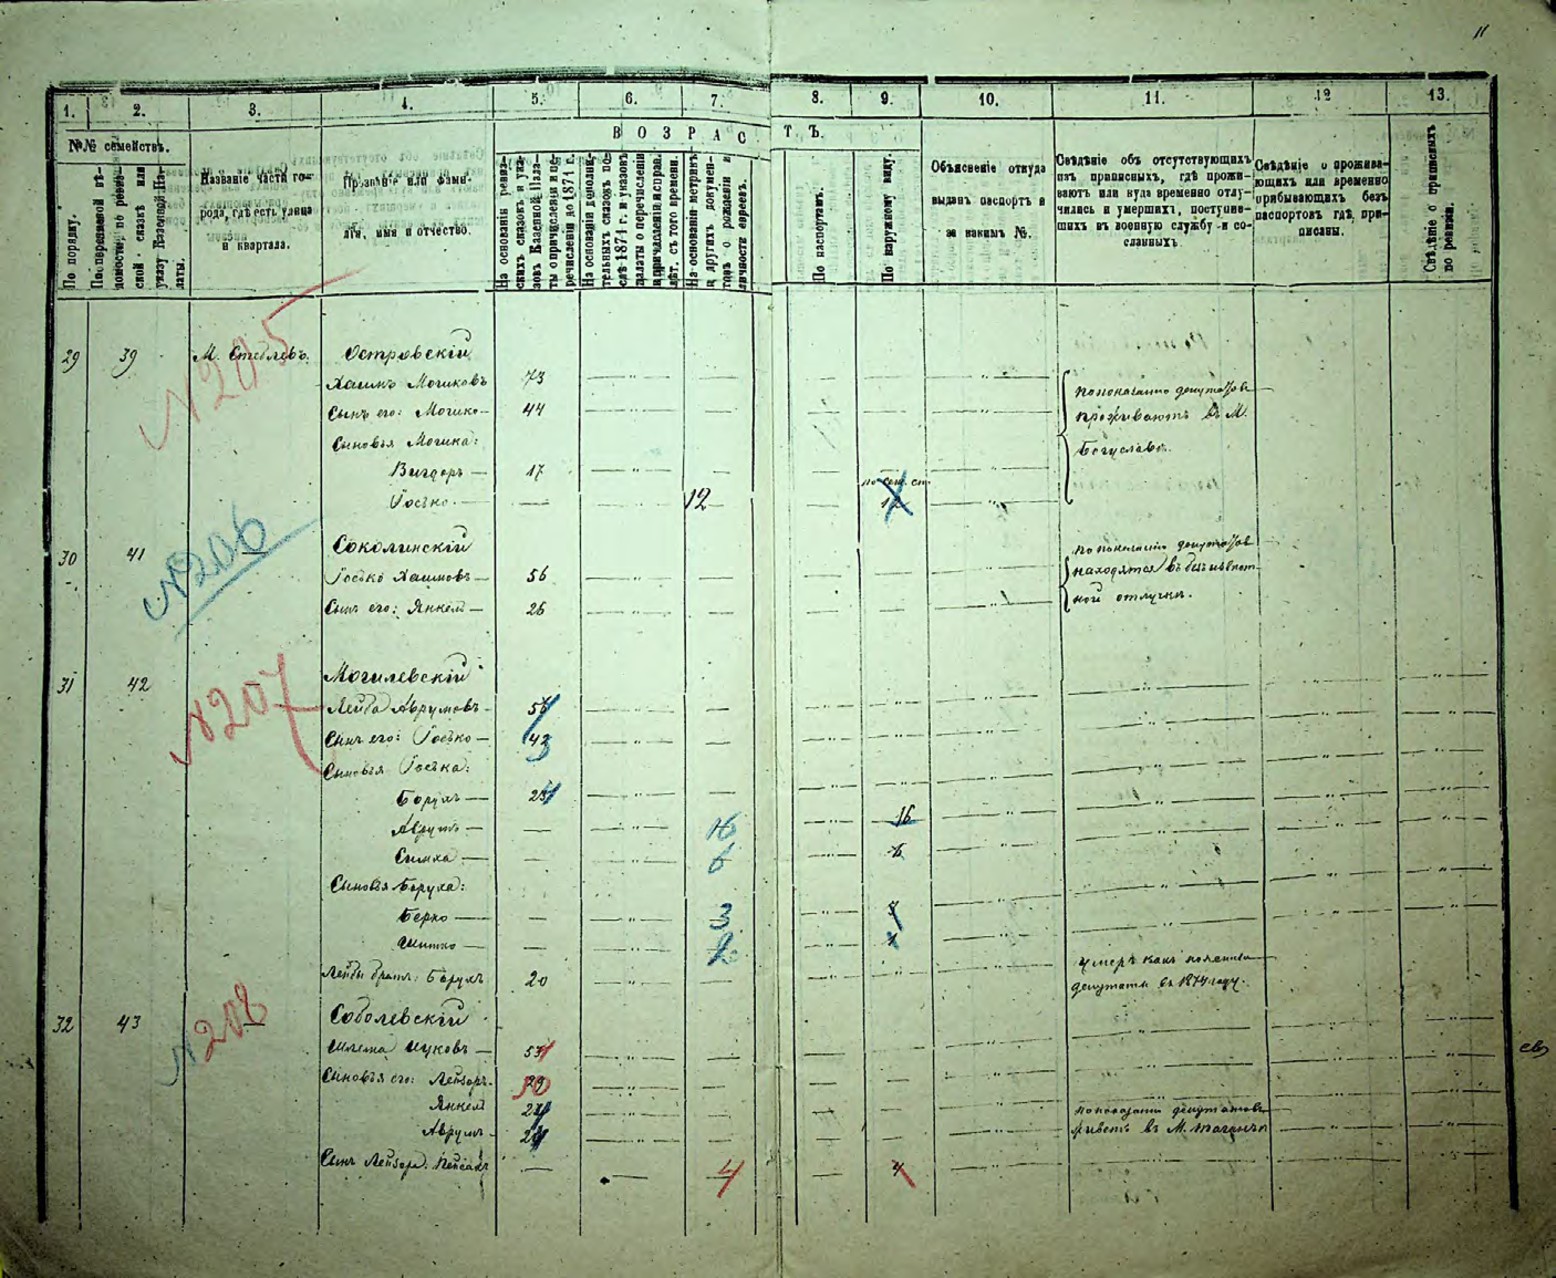 11
1. 2. 3. 4. 5. 6. 7. 8. 9. 10. 11. 12 13.
№№ семействъ.
ВОЗРАСТЪ.
По порядку.
По переписной вѣ-
домости, по ревиз-
ской сказкѣ или
указу Казенной Па-
латы.
Названіе части го-
рода, гдѣ есть улица
и квартала.
Прозваніе или фами-
лія, имя и отчество.
На основаніи ревиз-
скихъ сказокъ и ука-
зовъ Казенной Пала-
ты о причисленіи и пе-
речисленіи до 1874 г.
На основаніи дополни-
тельныхъ сказокъ по-
слѣ 1874 г. и указовъ
палаты о перечисленіи
и причисленіи и справ.
лѣт. съ того времени.
На основаніи метрикъ
и другихъ докумен-
товъ о рожденіи и
личности евреевъ.
По паспортамъ.
По наружному виду.
Объясненіе откуда
выданъ паспортъ и
за какимъ №.
Свѣдѣніе объ отсутствующихъ
изъ приписныхъ, гдѣ прожи-
ваютъ или куда временно отлу-
чились и умершихъ, поступив-
шихъ въ военную службу и со-
сланныхъ
Свѣдѣніе о прожива-
ющихъ или временно
прибывающихъ безъ
паспортовъ гдѣ, при-
писаны.
Свѣдѣніе о приписныхъ
по ревизіи.
29 39 М. Стеблевъ. Островскій
№205
Хаимъ Мошковъ 73
Сынъ его: Мошко 44
Сыновья Мошка:
Вигдоръ 17
Іосько 12 12
по показанію депутатовъ
проживаютъ въ М.
Богуславѣ.
30 41 Соколинскій
№206
Іосько Хаимовъ 56
Сынъ его: Янкель 26
по показанію депутатовъ
находятся въ безъизвѣст-
ной отлучкѣ.
31 42 Могилевскій
№207
Лейба Аврумовъ
Сынъ его: Іосько
Сыновья Іоська:
Борухъ
Аврумъ 16 16
Симха 6 6
Сыновья Боруха:
Берко 3
Шимко 2
Лейбы братъ: Борухъ 20
умеръ
депутаты въ 1874 году.
32 43 Соболевскій
№208
Шлема Ицковъ
Сыновья его: Лейзоръ
Янкель
Аврумъ
по показанію депутатовъ
живетъ въ М.
Сынъ Лейзора: Пейсахъ 4 4